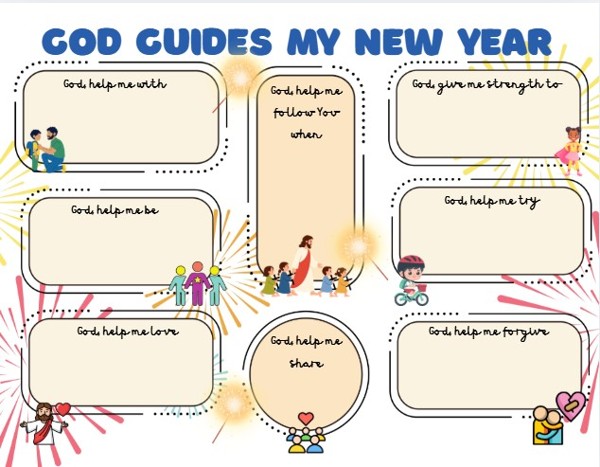 GOD GUIDES MY NEW YEAR
God, help me with
God, help me
follow You
when
God, give me strength to
God, help me be
God, help me try
God, help me love
God, help me
share
God, help me forgive